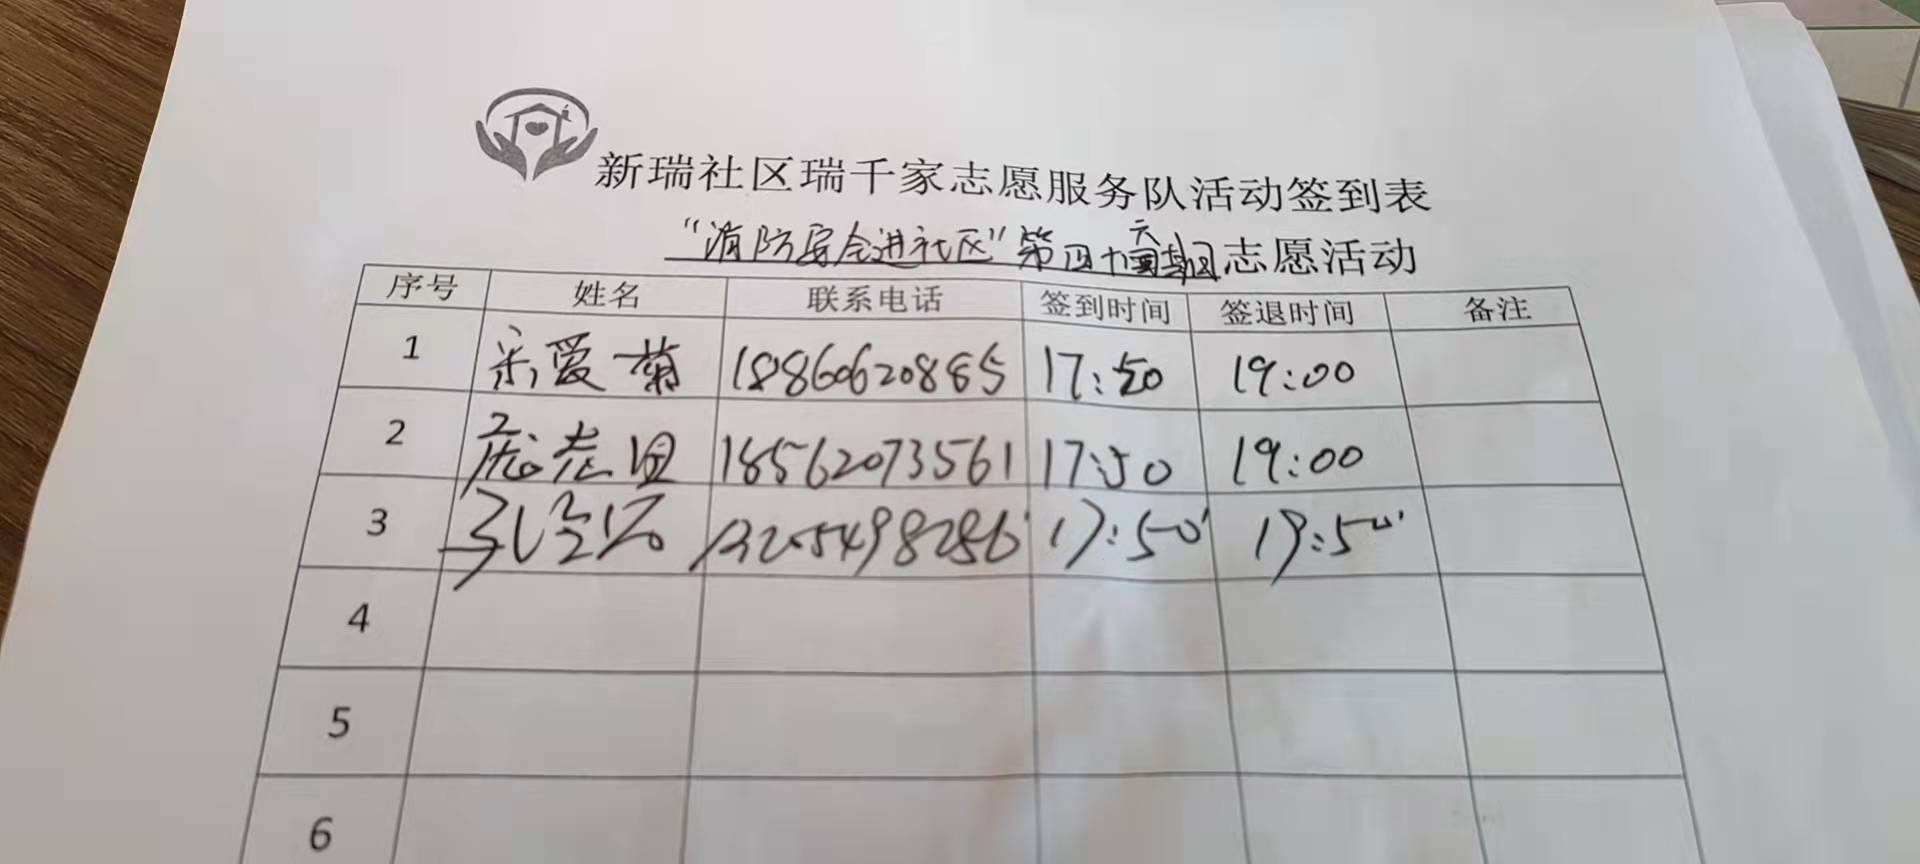 新瑞社区瑞千家志愿服务队活动签到表
“消防安全进社区”第四十六期志愿活动
序号 姓名 联系电话 签到时间 签退时间 备注
1 宋爱菊 18860620865 17:50 19:00
2 庞志 18562073561 17:50 19:00
3 17:50 19:50
4
5
6